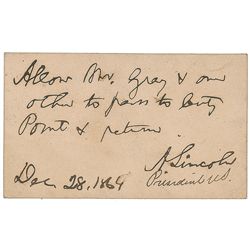 Allow Mr. Gray & one
other to pass to City
Point & return.
Dec. 28, 1864
A. Lincoln
President U.S.